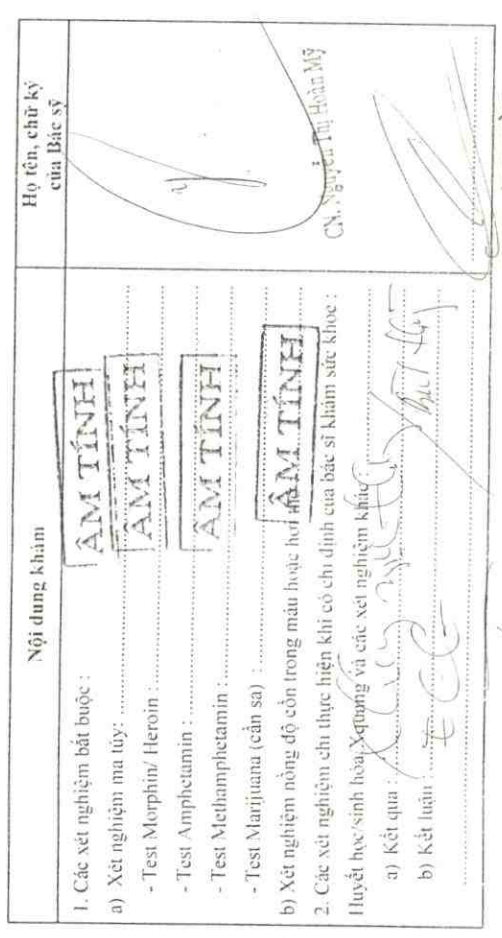 Nội dung khám
Họ tên, chữ ký
của Bác sỹ
1. Các xét nghiệm bắt buộc :
a) Xét nghiệm ma túy:
ÂM TÍNH
- Test Morphin/ Heroin :
ÂM TÍNH
- Test Amphetamin :
- Test Methamphetamin :
ÂM TÍNH
- Test Marijuana (cần sa) :
b) Xét nghiệm nồng độ cồn trong máu hoặc hơi
ÂM TÍNH
CN. Nguyễn Thị Hoàn Mỹ
2. Các xét nghiệm chỉ thực hiện khi có chỉ định của bác sĩ khám sức khỏe :
Huyết học/sinh hóa/Xquang và các xét nghiệm khác
a) Kết quả :
b) Kết luận :